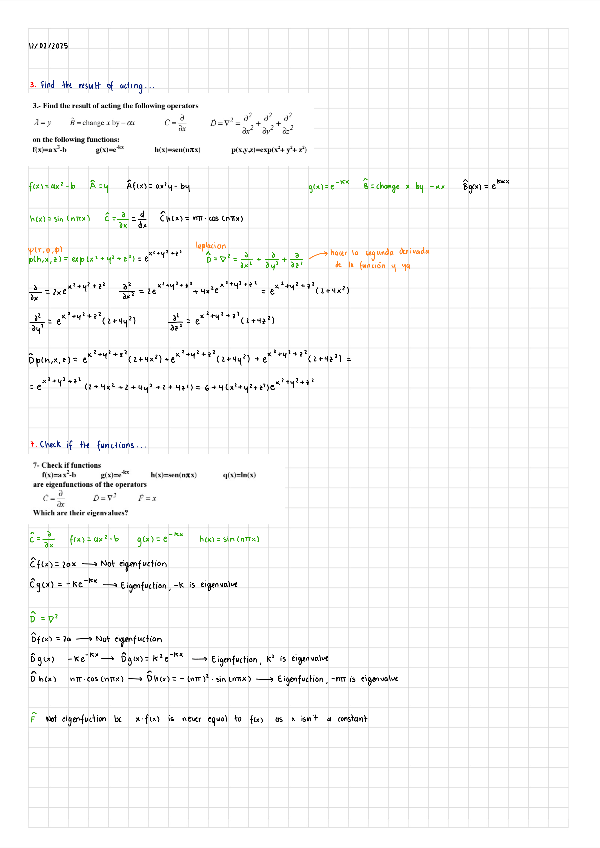 12/02/2025
3. Find the result of acting...
3.- Find the result of acting the following operators
Â = y   B̂ = change x by −αx   Ĉ = ∂/∂x   D̂ = ∇² = ∂²/∂x² + ∂²/∂y² + ∂²/∂z²
on the following functions:
f(x)=ax²-b   g(x)=e^-kx   h(x)=sen(nπx)   p(x,y,z)=exp(x²+ y²+ z²)
f(x) = ax²-b   Â = y   Âf(x) = ax²y - by   g(x) = e^-kx   B̂ = change x by -αx   B̂g(x) = e^kαx
h(x) = sin (nπx)   Ĉ = ∂/∂x = d/dx   Ĉh(x) = nπ · cos (nπx)
ψ(r, θ, φ)   laplacian
p(h,x,z) = exp(x² + y² + z²) = e^x²+y²+z²   D̂ = ∇² = ∂/∂x² + ∂/∂y² + ∂/∂z² → hacer la segunda derivada
de la función y ya
∂/∂x = 2xe^x²+y²+z²   ∂²/∂x² = 2e^x²+y²+z² + 4x²e^x²+y²+z² = e^x²+y²+z² (2+4x²)
∂²/∂y² = e^x²+y²+z² (2+4y²)   ∂²/∂z² = e^x²+y²+z² (2+4z²)
D̂p(h,x,z) = e^x²+y²+z² (2+4x²) + e^x²+y²+z² (2+4y²) + e^x²+y²+z² (2+4z²) =
= e^x²+y²+z² (2+4x² + 2+4y² + 2+4z²) = 6+4(x²+y²+z²)e^x²+y²+z²
7. Check if the functions...
7- Check if functions
f(x)=ax²-b   g(x)=e^-kx   h(x)=sen(nπx)   q(x)=ln(x)
are eigenfunctions of the operators
Ĉ = ∂/∂x   D̂ = ∇²   F̂ = x
Which are their eigenvalues?
Ĉ = ∂/∂x   f(x) = ax²-b   g(x) = e^-kx   h(x) = sin (nπx)
Ĉf(x) = 2ax → Not eigenfuction
Ĉg(x) = -ke^-kx → Eigenfuction, -k is eigenvalue
D̂ = ∇²
D̂f(x) = 2a → Not eigenfuction
D̂g(x)   -ke^-kx → D̂g(x) = k²e^-kx → Eigenfuction, k² is eigenvalue
D̂h(x)   nπ · cos (nπx) → D̂h(x) = -(nπ)² · sin (nπx) → Eigenfuction, -nπ is eigenvalue
F̂ Not eigenfuction bc x·f(x) is never equal to f(x) as x isn't a constant